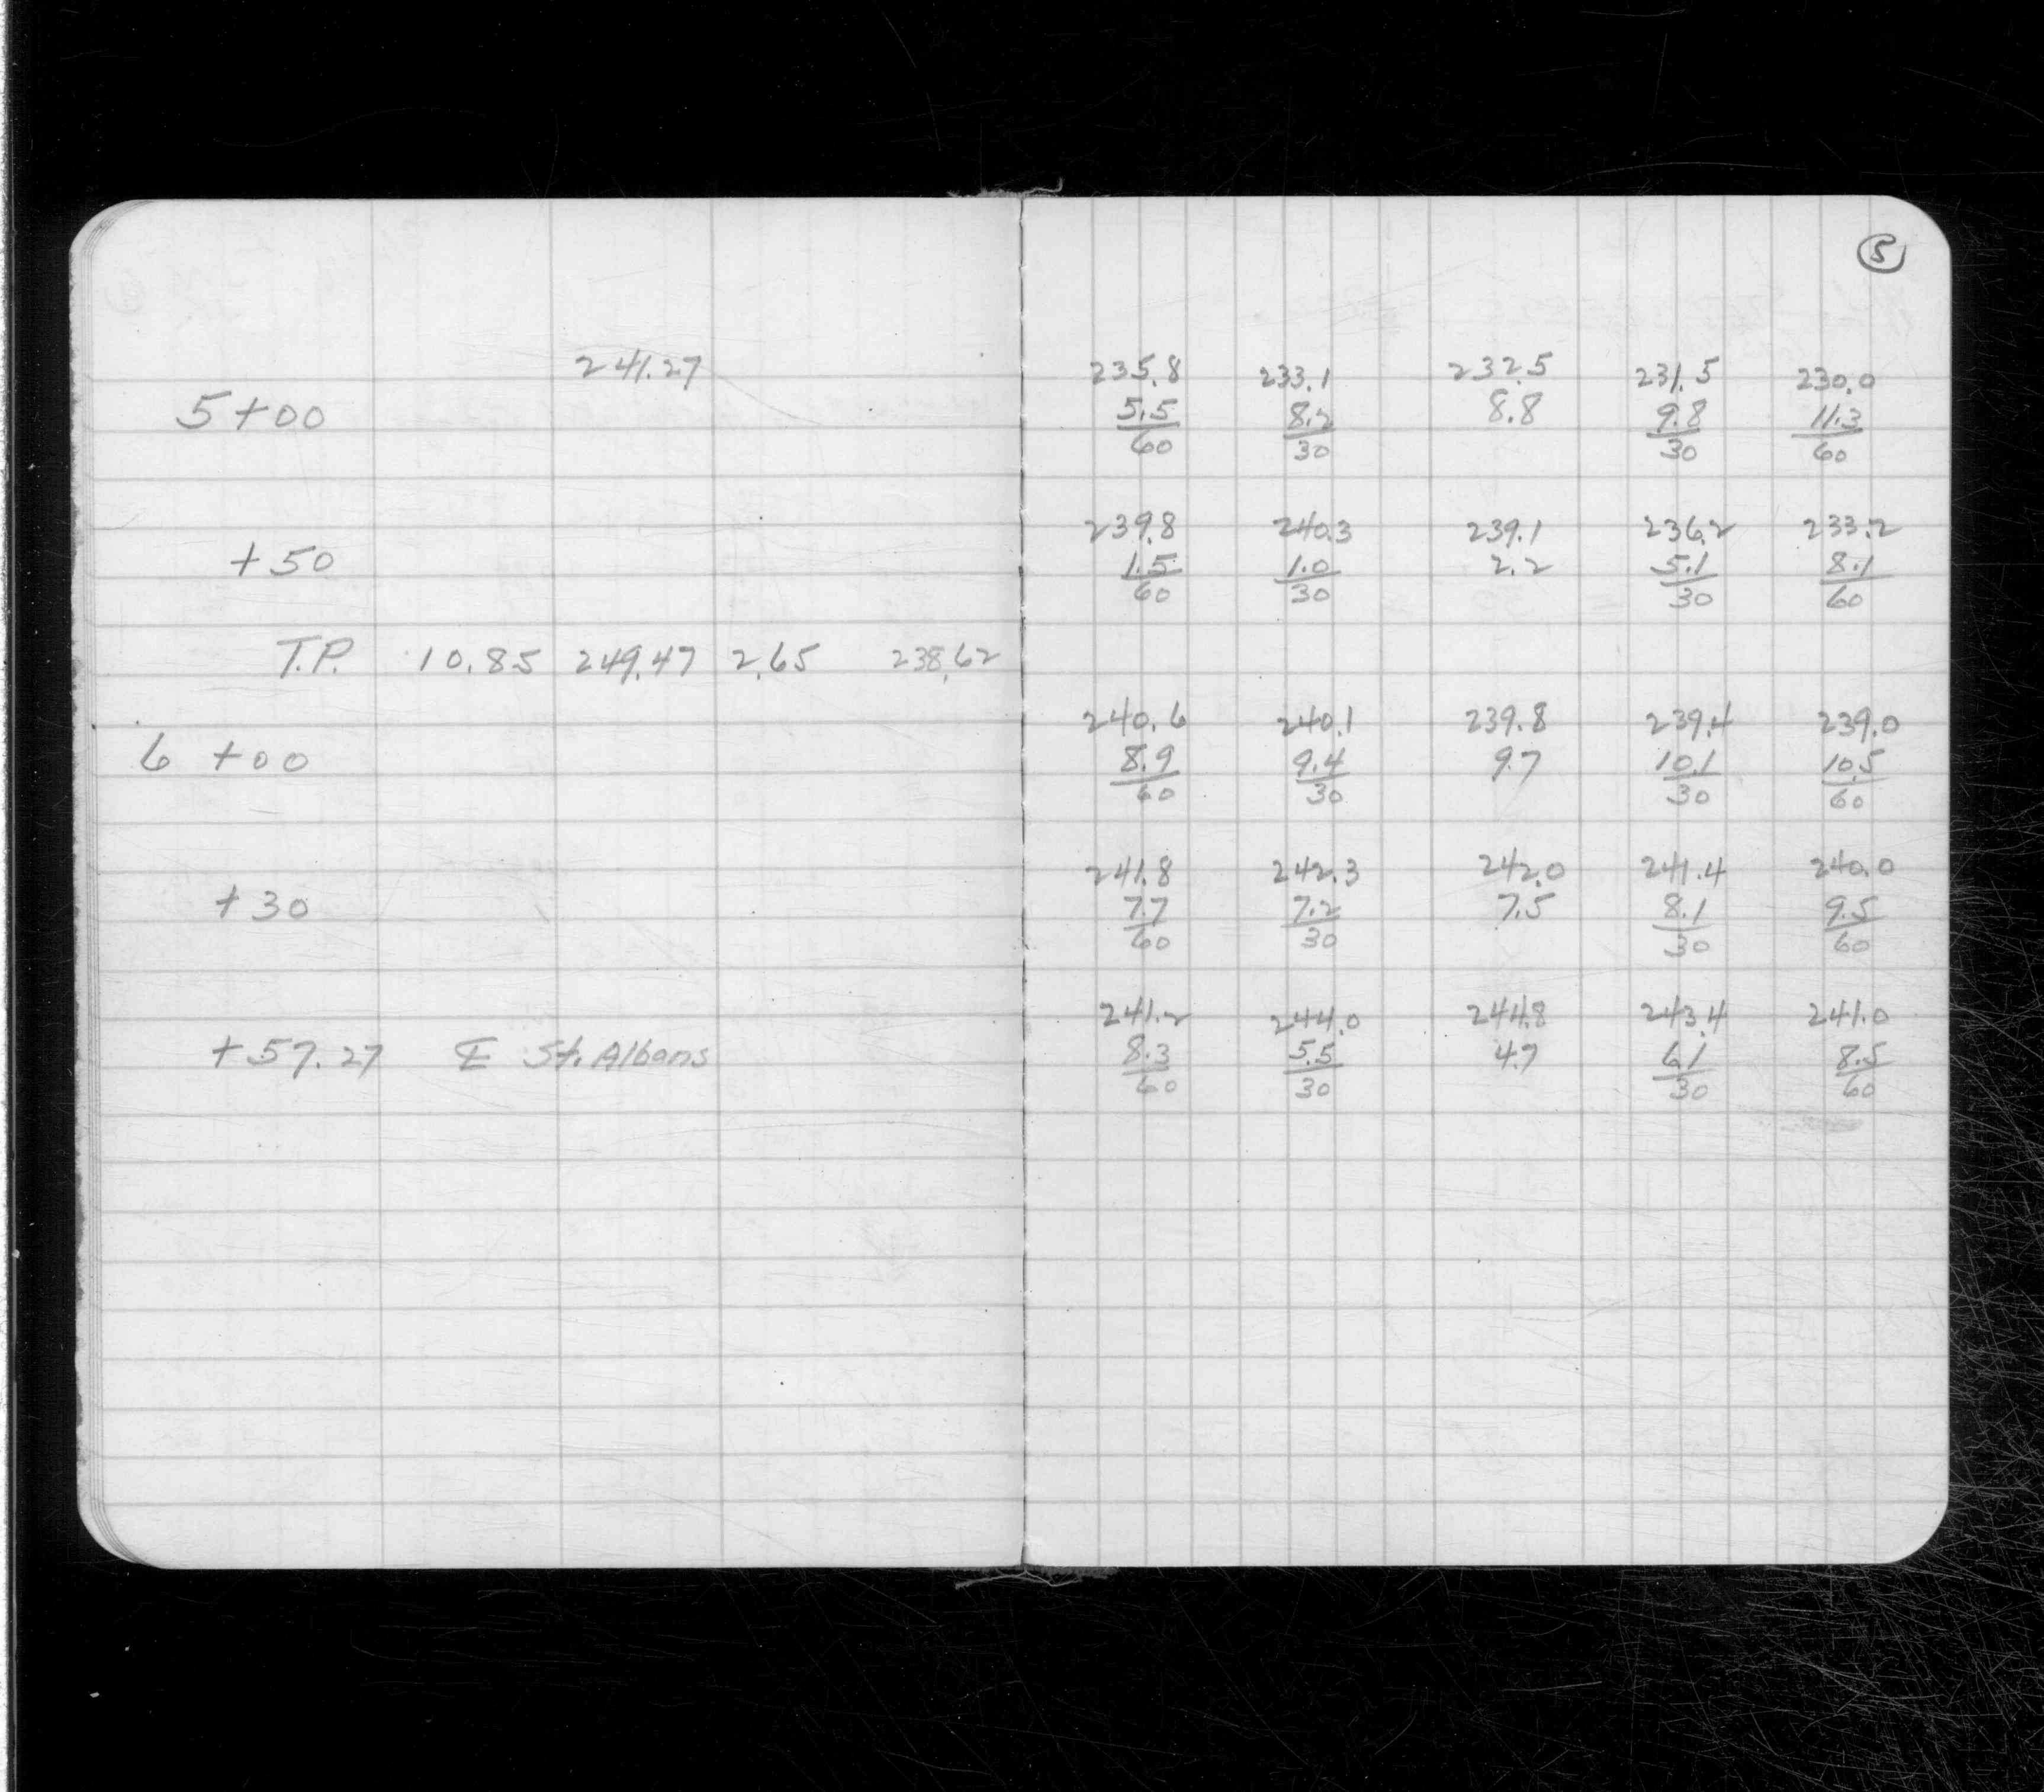 5
241.27 235.8 233.1 232.5 231.5 230.0
5+00 5.5 8.2 8.8 9.8 11.3
60 30 30 60
239.8 240.3 239.1 236.2 233.2
+50 1.5 1.0 2.2 5.1 8.1
60 30 30 60
T.P. 10.85 249.47 2.65 238.62
240.6 240.1 239.8 239.4 239.0
6+00 8.9 9.4 9.7 10.1 10.5
60 30 30 60
241.8 242.3 242.0 241.4 240.0
+30 7.7 7.2 7.5 8.1 9.5
60 30 30 60
241.2 244.0 244.8 243.4 241.0
+57.27 ℄ St. Albans 8.3 5.5 4.7 6.1 8.5
60 30 30 60